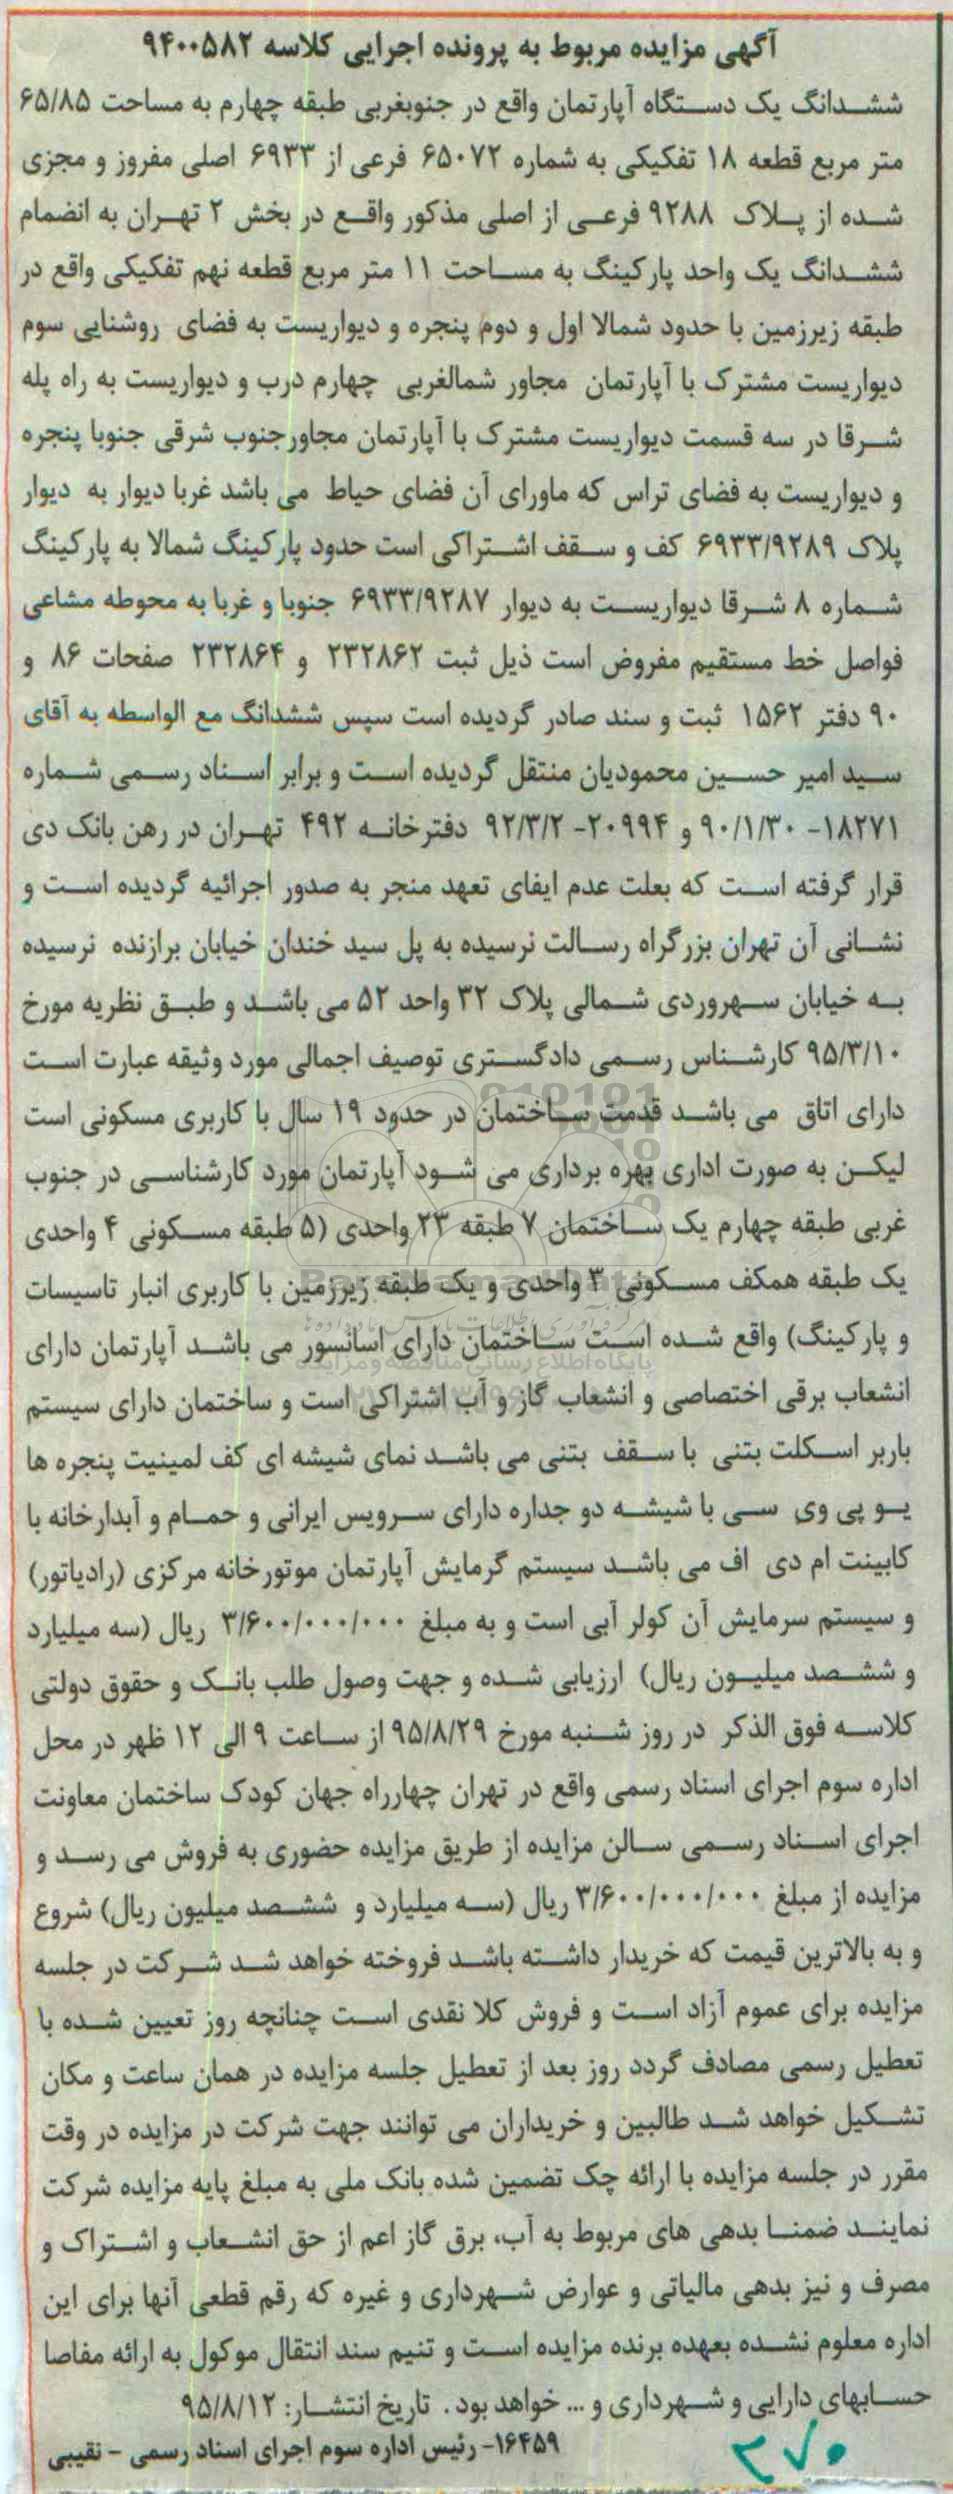 آگهی مزایده مربوط به پرونده اجرایی کلاسه ۹۴۰۰۵۸۲
ششدانگ یک دستگاه آپارتمان واقع در جنوبغربی طبقه چهارم به مساحت ۶۵/۸۵
متر مربع قطعه ۱۸ تفکیکی به شماره ۶۵۰۷۲ فرعی از ۶۹۳۳ اصلی مفروز و مجزی
شده از پلاک ۹۲۸۸ فرعی از اصلی مذکور واقع در بخش ۲ تهران به انضمام
ششدانگ یک واحد پارکینگ به مساحت ۱۱ متر مربع قطعه نهم تفکیکی واقع در
طبقه زیرزمین با حدود شمالا اول و دوم پنجره و دیواریست به فضای روشنایی سوم
دیواریست مشترک با آپارتمان مجاور شمالغربی چهارم درب و دیواریست به راه پله
شرقا در سه قسمت دیواریست مشترک با آپارتمان مجاورجنوب شرقی جنوبا پنجره
و دیواریست به فضای تراس که ماورای آن فضای حیاط می باشد غربا دیوار به دیوار
پلاک ۶۹۳۳/۹۲۸۹ کف و سقف اشتراکی است حدود پارکینگ شمالا به پارکینگ
شماره ۸ شرقا دیواریست به دیوار ۶۹۳۳/۹۲۸۷ جنوبا و غربا به محوطه مشاعی
فواصل خط مستقیم مفروض است ذیل ثبت ۲۳۲۸۶۲ و ۲۳۲۸۶۴ صفحات ۸۶ و
۹۰ دفتر ۱۵۶۲ ثبت و سند صادر گردیده است سپس ششدانگ مع الواسطه به آقای
سید امیر حسین محمودیان منتقل گردیده است و برابر اسناد رسمی شماره
۱۸۲۷۱- ۹۰/۱/۳۰ و ۲۰۹۹۴- ۹۲/۳/۲ دفترخانه ۴۹۲ تهران در رهن بانک دی
قرار گرفته است که بعلت عدم ایفای تعهد منجر به صدور اجرائیه گردیده است و
نشانی آن تهران بزرگراه رسالت نرسیده به پل سید خندان خیابان برازنده نرسیده
به خیابان سهروردی شمالی پلاک ۳۲ واحد ۵۲ می باشد و طبق نظریه مورخ
۹۵/۳/۱۰ کارشناس رسمی دادگستری توصیف اجمالی مورد وثیقه عبارت است
دارای اتاق می باشد قدمت ساختمان در حدود ۱۹ سال با کاربری مسکونی است
لیکن به صورت اداری بهره برداری می شود آپارتمان مورد کارشناسی در جنوب
غربی طبقه چهارم یک ساختمان ۷ طبقه ۲۳ واحدی (۵ طبقه مسکونی ۴ واحدی
یک طبقه همکف مسکونی ۳ واحدی و یک طبقه زیرزمین با کاربری انبار تاسیسات
و پارکینگ) واقع شده است ساختمان دارای اسانسور می باشد آپارتمان دارای
انشعاب برقی اختصاصی و انشعاب گاز و آب اشتراکی است و ساختمان دارای سیستم
باربر اسکلت بتنی با سقف بتنی می باشد نمای شیشه ای کف لمینیت پنجره ها
یو پی وی سی با شیشه دو جداره دارای سرویس ایرانی و حمام و آبدارخانه با
کابینت ام دی اف می باشد سیستم گرمایش آپارتمان موتورخانه مرکزی (رادیاتور)
و سیستم سرمایش آن کولر آبی است و به مبلغ ۳/۶۰۰/۰۰۰/۰۰۰ ریال (سه میلیارد
و ششصد میلیون ریال) ارزیابی شده و جهت وصول طلب بانک و حقوق دولتی
کلاسه فوق الذکر در روز شنبه مورخ ۹۵/۸/۲۹ از ساعت ۹ الی ۱۲ ظهر در محل
اداره سوم اجرای اسناد رسمی واقع در تهران چهارراه جهان کودک ساختمان معاونت
اجرای اسناد رسمی سالن مزایده از طریق مزایده حضوری به فروش می رسد و
مزایده از مبلغ ۳/۶۰۰/۰۰۰/۰۰۰ ریال (سه میلیارد و ششصد میلیون ریال) شروع
و به بالاترین قیمت که خریدار داشته باشد فروخته خواهد شد شرکت در جلسه
مزایده برای عموم آزاد است و فروش کلا نقدی است چنانچه روز تعیین شده با
تعطیل رسمی مصادف گردد روز بعد از تعطیل جلسه مزایده در همان ساعت و مکان
تشکیل خواهد شد طالبین و خریداران می توانند جهت شرکت در مزایده در وقت
مقرر در جلسه مزایده با ارائه چک تضمین شده بانک ملی به مبلغ پایه مزایده شرکت
نمایند ضمنا بدهی های مربوط به آب، برق گاز اعم از حق انشعاب و اشتراک و
مصرف و نیز بدهی مالیاتی و عوارض شهرداری و غیره که رقم قطعی آنها برای این
اداره معلوم نشده بعهده برنده مزایده است و تنیم سند انتقال موکول به ارائه مفاصا
حسابهای دارایی و شهرداری و ... خواهد بود . تاریخ انتشار: ۹۵/۸/۱۲
۱۶۴۵۹- رئیس اداره سوم اجرای اسناد رسمی - نقیبی
۲۷۰